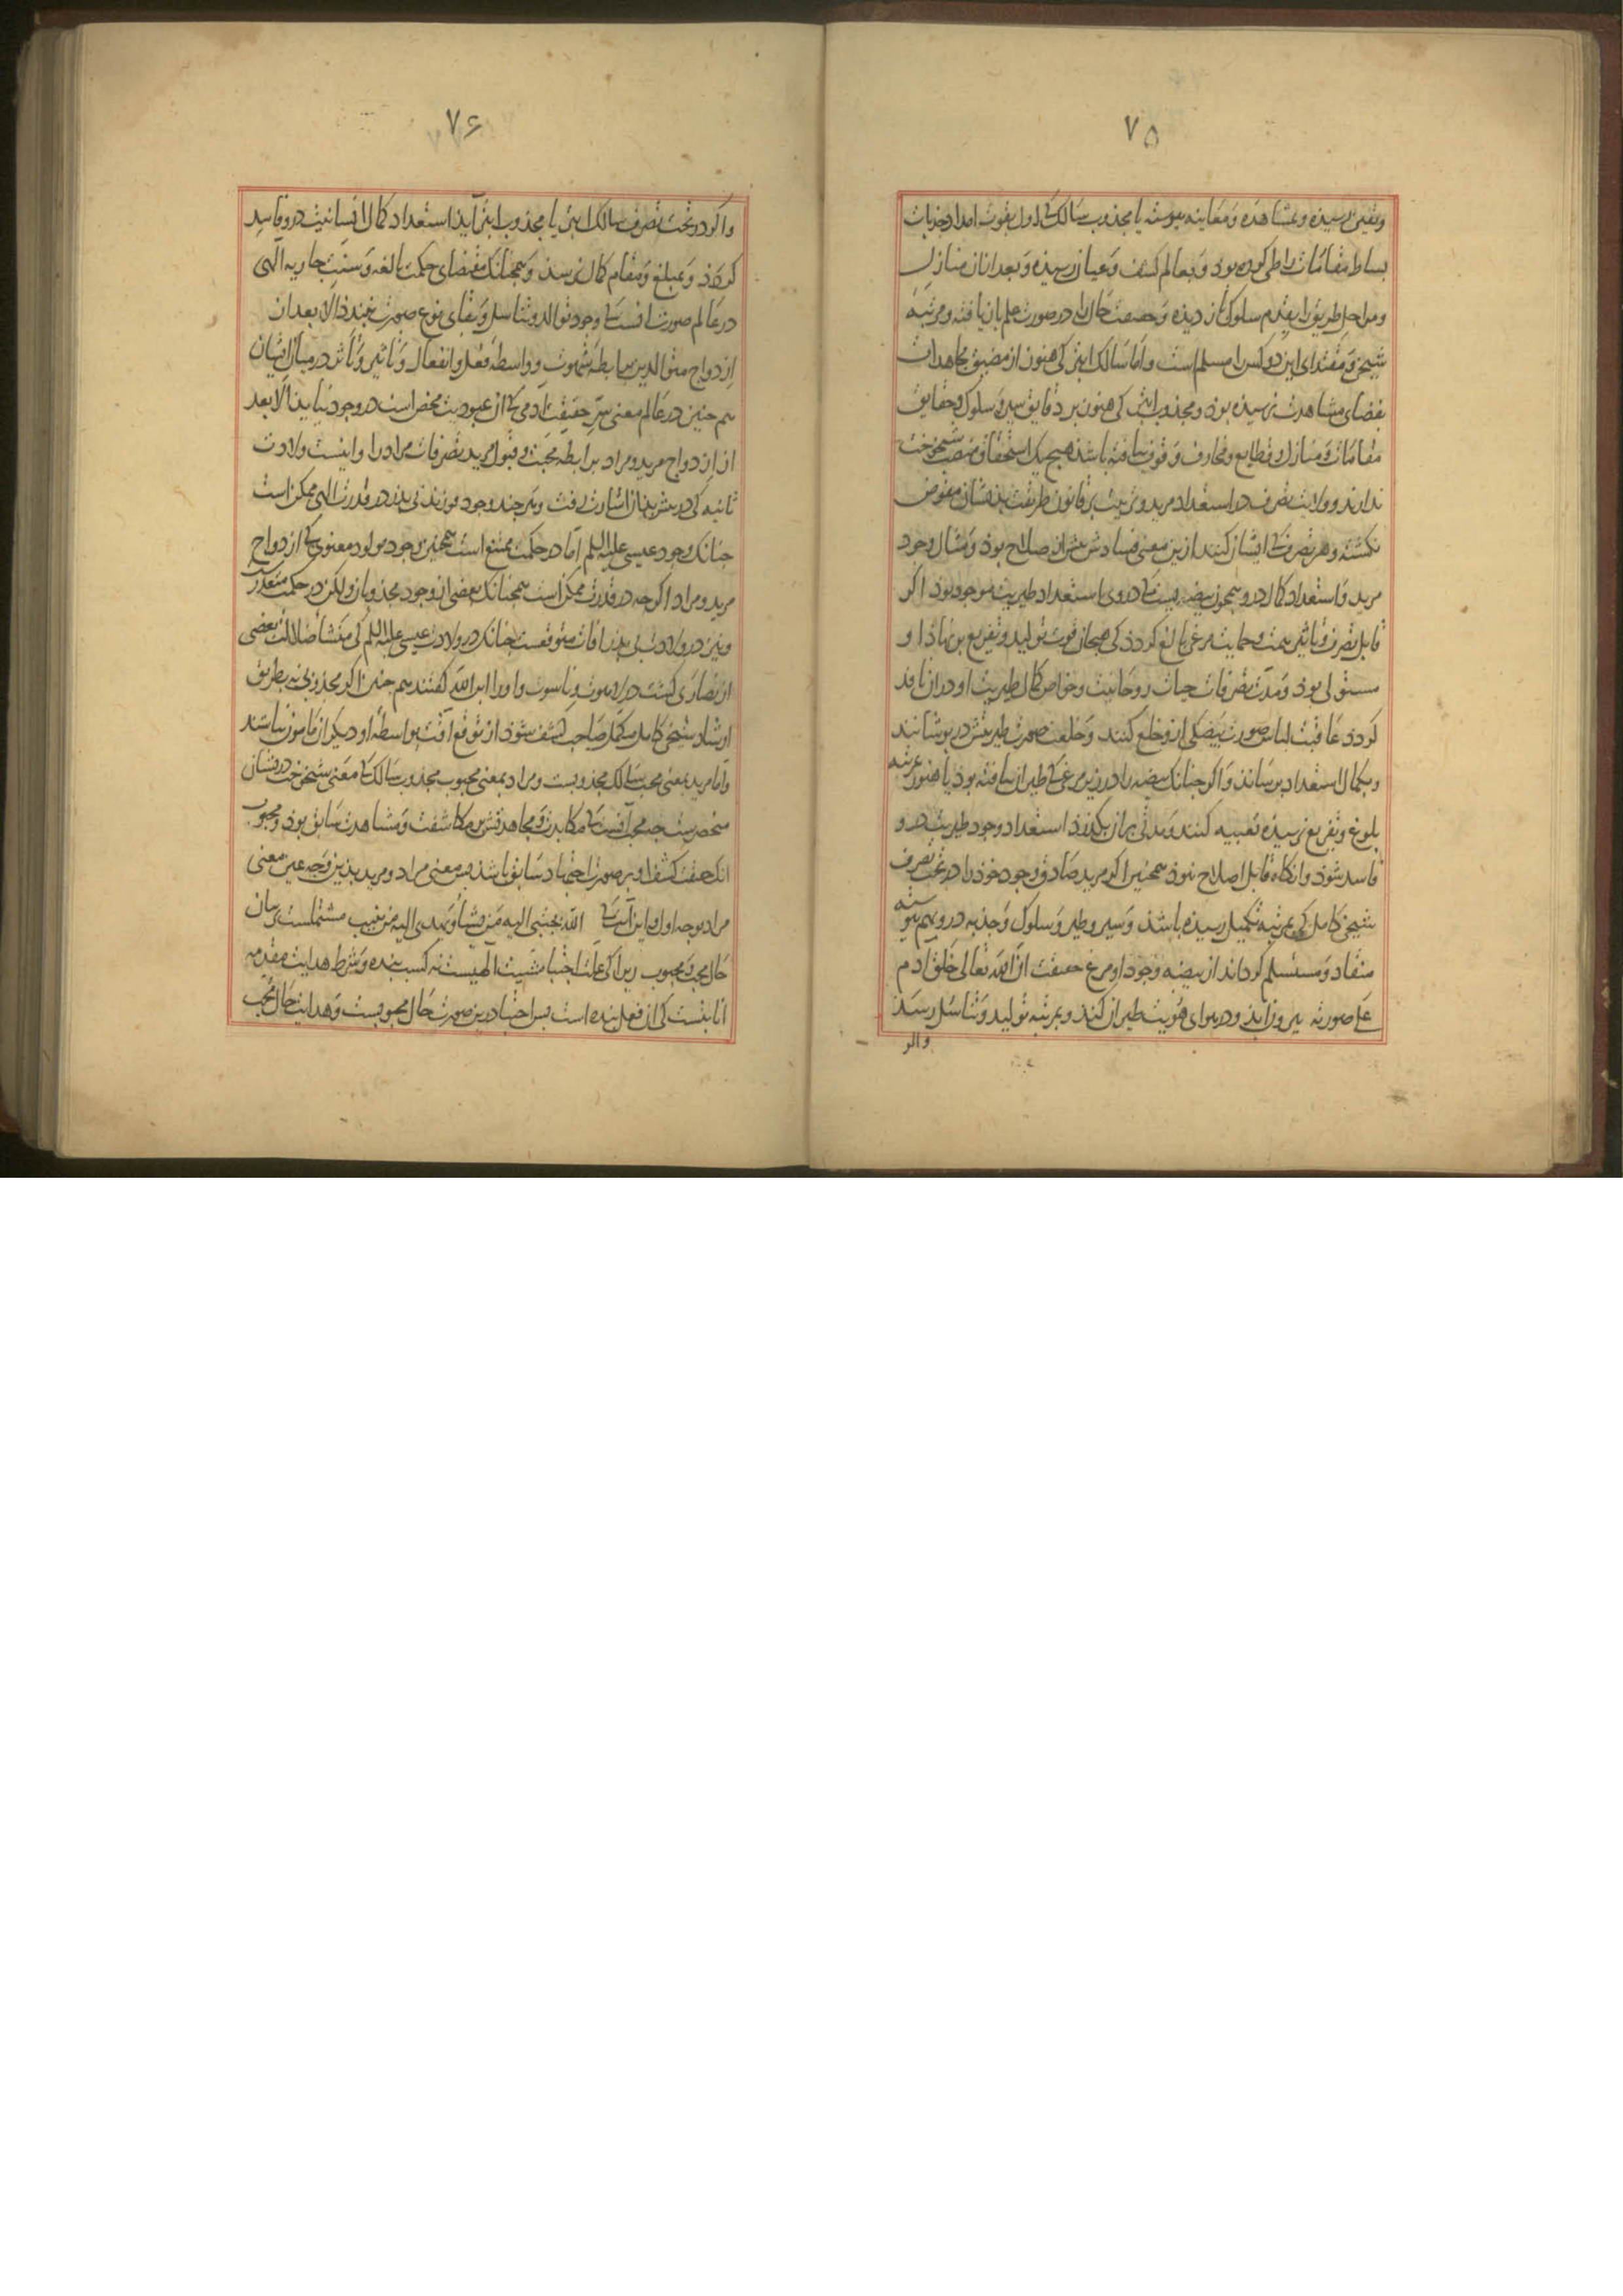 ۷۵
و یقین رسیذه و بمشاهده و معاینه پیوسته یا مجذوب سالک کی اول بقوت امداد جذبات
بساط مقامات را طی کرده بوذ و بعالم کشف و عیان رسیذه و بعد ازان منازل
و مراحل طریق را بقدم سلوک باز دیذه و حقیقت حال را در صورت علم باز یافته و مرتبه
شیخی و مقتدای این دو کس را مسلم است و اما سالک ابتر کی هنوز از مضیق مجاهدات
بفضای مشاهدت نرسیذه بوذ و مجذوب ابتر کی هنوز بر دقایق سیر و سلوک و حقایق
مقامات و منازل و قطایع و مخاوف وقوف نیافته باشذ هیچ یک استحقاق منصب شیخوخت
ندارند و ولایت تصرف در استعداد مرید و تربیت بر قانون طریقت بذیشان مفوض
نکشته و هر تصرف کی ایشان کنند ازین معنی فسادش بیش از صلاح بوذ و مثال وجود
مرید و استعداد کمال درو همچون بیضه ایست کی در وی استعداد طیریت موجود بوذ اگر
قابل تصرف و تاثیر همت و حمایت مرغی بالغ کردد کی هیجان قوت تولید و تفریخ بر نهاذ او
مستولی بوذ و مدت تصرفات حیات روحانیت و خواص کمال طیریت او در ان نافذ
کردد عاقبت لباس صورت بیضکی ازو خلع کنند و خلعت صورت طیریتش در پوشانند
و بکمال استعداد برسانند و اکر چنانک بیضه را در زیر مرغی کی طیران نیافته بوذ یا هنوز بمرتبه
بلوغ و تفریخ نرسیذه تعبیه کنند و مدتی بران بکذرد استعداد وجود طیریت درو
فاسد شوذ و انکاه قابل اصلاح نبوذ همچنین اکر مرید صادق وجود خوذ را در تحت تصرف
شیخی کامل کی بمرتبه تکمیل رسیذه باشذ و سیر و طیر و سلوک و جذبه درو بهم پیوسته
منقاد و مستسلم کرداند از بیضه وجود او مرغ حقیقت ان الله تعالی خلق ادم
علی صورته بیرون ایذ و در هوای هویت طیران کند و بمرتبه تولید و تناسل رسد
واکر
۷۶
و اکر در تحت تصرف سالک ابتر یا مجذوب ابتر آید استعداد کمال انسانیت درو فاسد
کردد و بمبلغ و مقام کمال نرسد و همچنانک مقتضای حکمت بالغه و سنت جاریه الهی
در عالم صورت انست کی وجود توالد و تناسل و بقای نوع صورت نبندد الا بعد از
ازدواج متوالدین برابطه شهوت و واسطه فعل و انفعال و تاثیر و تاثر در میان ایشان
هم چنین در عالم معنی سر حقیقت ادمی کی ان عبودیت محض است در وجود نیاید الا بعد
از ازدواج مرید و مراد برابطه محبت و قبول مرید تصرفات مراد را و اینست ولادت
ثانیه کی در پیش بذان اشارت رفت و هر چند وجود فرزند بی پذر در قدرت الهی ممکن است
چنانک وجود عیسی علیه السلم اما در حکمت ممتنع است همچنین وجود مولود معنوی بی ازدواج
مرید و مراد اکرچه در قدرت ممکن است همچنانک بعضی از وجود مجذوبان ولکن در حکمت متعذر
و نیز در ولادت بی پذر آفات متوقعست چنانک در ولادت عیسی علیه السلم کی منشأ ضلالت بعضی
از نصاری کشت در لاهوت و ناسوت و او را ابن الله کفتند هم چنین اکر مجذوبی نه بطریق
ارشاد شیخی کامل مکمل صاحب کشف شوذ از توقع آفت بواسطه او دیکران مامون نباشند
و اما مرید بمعنی محب سالک مجذوبست و مراد بمعنی محبوب مجذوب سالک کی معنی شیخوخت در ایشان
منحصرست چه محب آنست کی مکابدت و مجاهدتش بر مکاشفت و مشاهدت سابق بوذ و محبوب
انک حقیقت کشف او بر صورت اجتهاد سابق باشذ پس معنی مراد و مرید بذین وجه عین معنی
مراد بوجه اول و این آیت کی الله یجتبی الیه من یشاء و یهدی الیه من ینیب مشتملست بر بیان
حال محب و محبوب زیرا کی علت اجتبا مشیت الهیست نه کسب بنده و شرط هدایت مقدمه
انابتست کی ان فعل بنده است پس اجتبا درین صورت حال محبوبست و هدایت حال محب